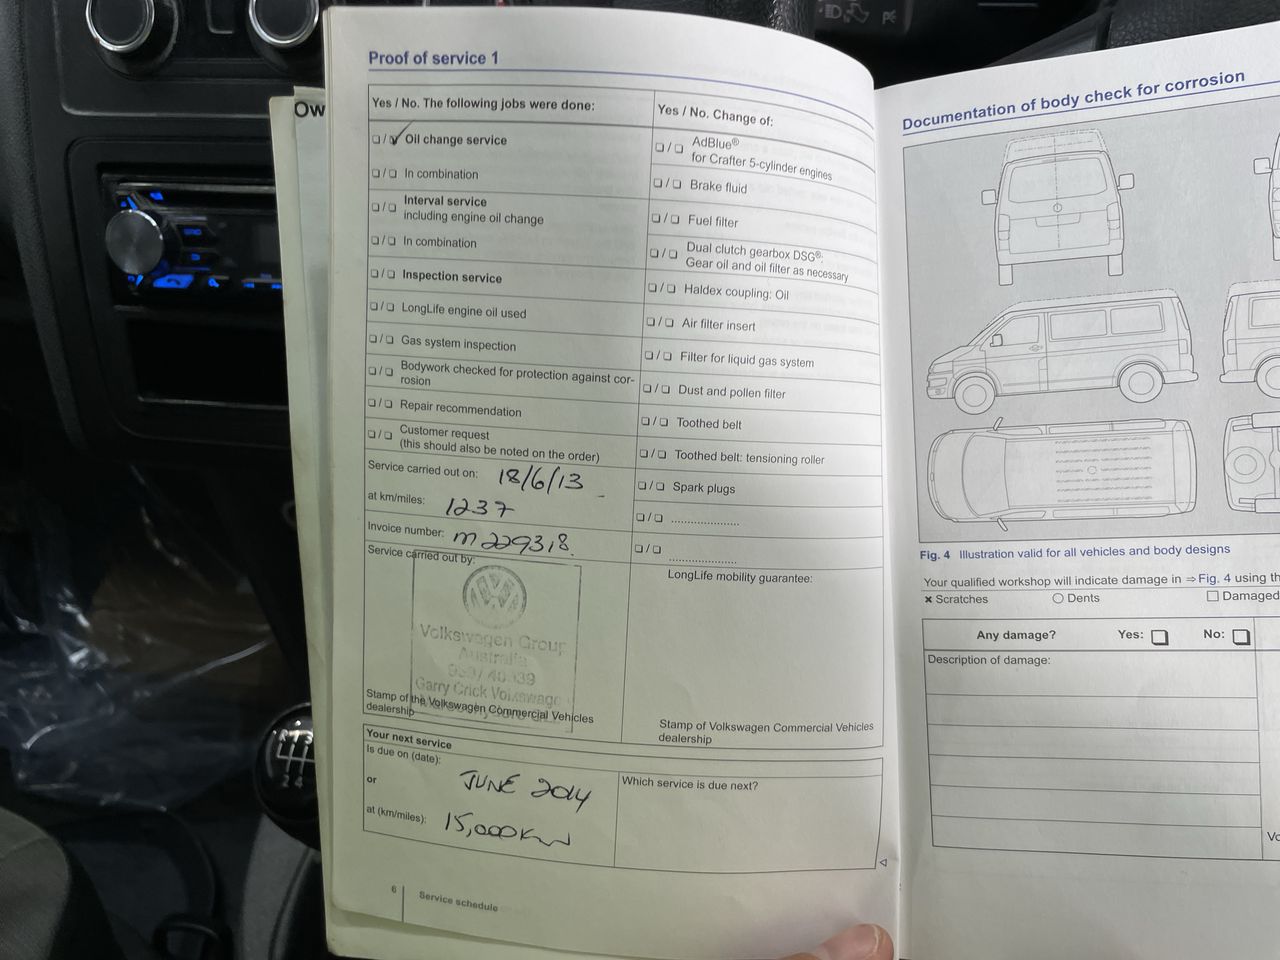 Proof of service 1
Ow
Yes / No. The following jobs were done:
❏ / ❏ ✓ Oil change service
❏ / ❏ In combination
❏ / ❏ Interval service
including engine oil change
❏ / ❏ In combination
❏ / ❏ Inspection service
❏ / ❏ LongLife engine oil used
❏ / ❏ Gas system inspection
❏ / ❏ Bodywork checked for protection against cor-
rosion
❏ / ❏ Repair recommendation
❏ / ❏ Customer request
(this should also be noted on the order)
Service carried out on: 18/6/13
at km/miles: 1237
Invoice number: m229318.
Service carried out by:
Volkswagen Group
Australia
Garry Crick Volkswage
Stamp of the Volkswagen Commercial Vehicles
dealership
Yes / No. Change of:
❏ / ❏ AdBlue®
for Crafter 5-cylinder engines
❏ / ❏ Brake fluid
❏ / ❏ Fuel filter
❏ / ❏ Dual clutch gearbox DSG®:
Gear oil and oil filter as necessary
❏ / ❏ Haldex coupling: Oil
❏ / ❏ Air filter insert
❏ / ❏ Filter for liquid gas system
❏ / ❏ Dust and pollen filter
❏ / ❏ Toothed belt
❏ / ❏ Toothed belt: tensioning roller
❏ / ❏ Spark plugs
❏ / ❏ .....................
❏ / ❏ .....................
LongLife mobility guarantee:
Stamp of Volkswagen Commercial Vehicles
dealership
Your next service
Is due on (date): JUNE 2014
or
at (km/miles): 15,000Km
Which service is due next?
6 Service schedule
Documentation of body check for corrosion
Fig. 4 Illustration valid for all vehicles and body designs
Your qualified workshop will indicate damage in ⇒ Fig. 4 using th
× Scratches ○ Dents ☐ Damaged
Any damage? Yes: ❏ No: ❏
Description of damage:
Vo